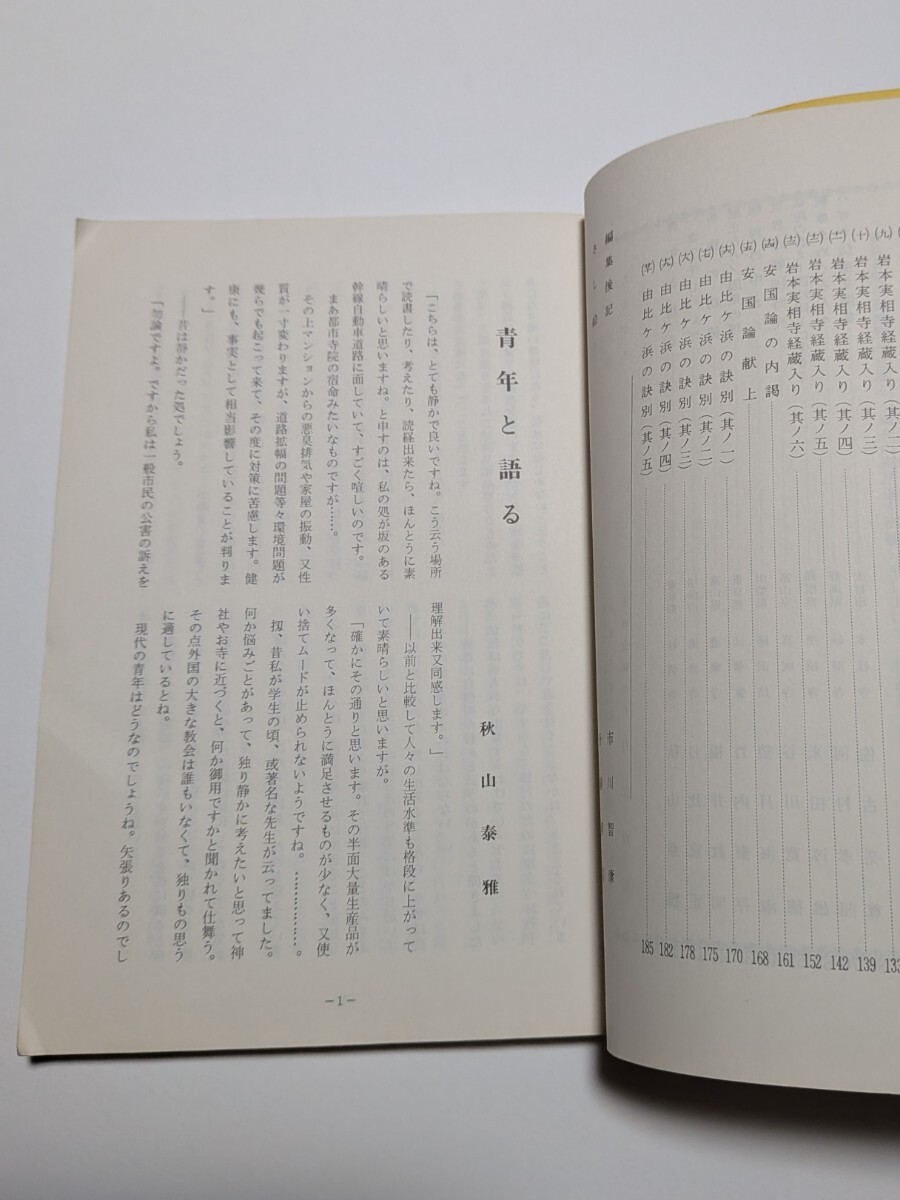 岩本実相寺経蔵入り(其ノ二)
㈨ 岩本実相寺経蔵入り(其ノ二)…133
㈩ 岩本実相寺経蔵入り(其ノ三)…139
(十一) 岩本実相寺経蔵入り(其ノ四)…142
(十二) 岩本実相寺経蔵入り(其ノ五)…152
(十三) 岩本実相寺経蔵入り(其ノ六)…161
(十四) 安国論の内謁…168
(十五) 安国論献上…170
(十六) 由比ヶ浜の訣別(其ノ一)…175
(十七) 由比ヶ浜の訣別(其ノ二)…178
(十八) 由比ヶ浜の訣別(其ノ三)…182
(十九) 由比ヶ浜の訣別(其ノ四)…185
由比ヶ浜の訣別(其ノ五)
編集後記 市川智
青年と語る
秋山泰雅
「こちらは、とても静かで良いですね。こう云う場所
で読書したり、考えたり、読経出来たら、ほんとうに素
晴らしいと思いますね。と申すのは、私の処が坂のある
幹線自動車道路に面していて、すごく喧しいのです。
まあ都市寺院の宿命みたいなものですが……。
その上マンションからの悪臭排気や家屋の振動、又性
質が一寸変わりますが、道路拡幅の問題等々環境問題が
幾らでも起こって来て、その度に対策に苦慮します。健
康にも、事実として相当影響していることが判りま
す。」
――昔は静かだった処でしょう。
「勿論ですよ。ですから私は一般市民の公害の訴えを
理解出来又同感します。」
――以前と比較して人々の生活水準も格段に上がって
いて素晴らしいと思いますが。
「確かにその通りと思います。その半面大量生産品が
多くなって、ほんとうに満足させるものが少なく、又使
い捨てムードが止められないようですね。……………。
扨、昔私が学生の頃、或著名な先生が云ってました。
何か悩みごとがあって、独り静かに考えたいと思って神
社やお寺に近づくと、何か御用ですかと聞かれて仕舞う。
その点外国の大きな教会は誰もいなくて、独りもの思う
に適しているとね。
現代の青年はどうなのでしょうね。矢張りあるのでし
－1－